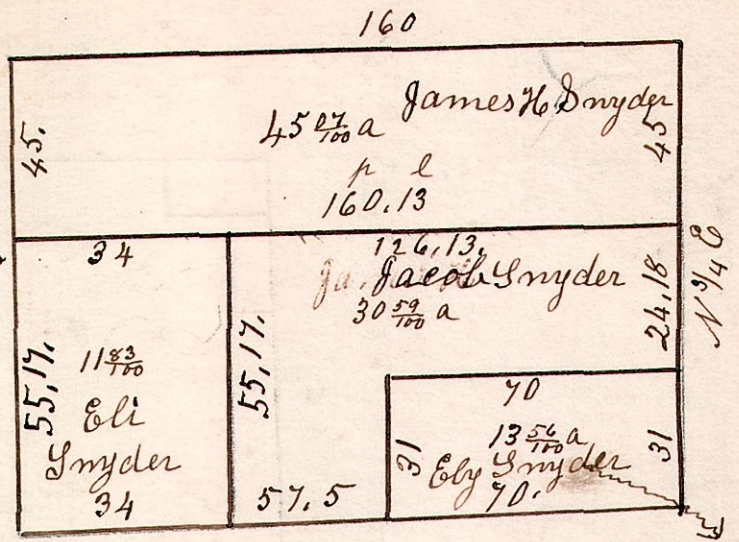 160
James H Snyder
45 07/100 a
45.
45
p l
160.13
34
126,13.
Ja. Jacob Snyder
30 59/100 a
24,18
N 3/4 E
55,17.
11 83/100
Eli
Snyder
34
55,17.
57.5
70
31
13 56/100 a
Eby Snyder
70.
31